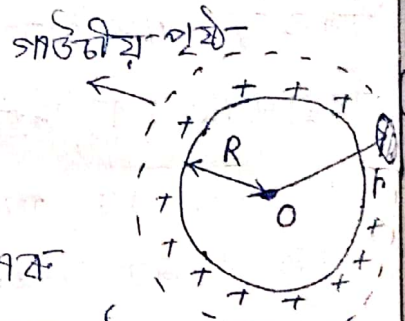 গাউসীয় পৃষ্ঠ
R
O
r